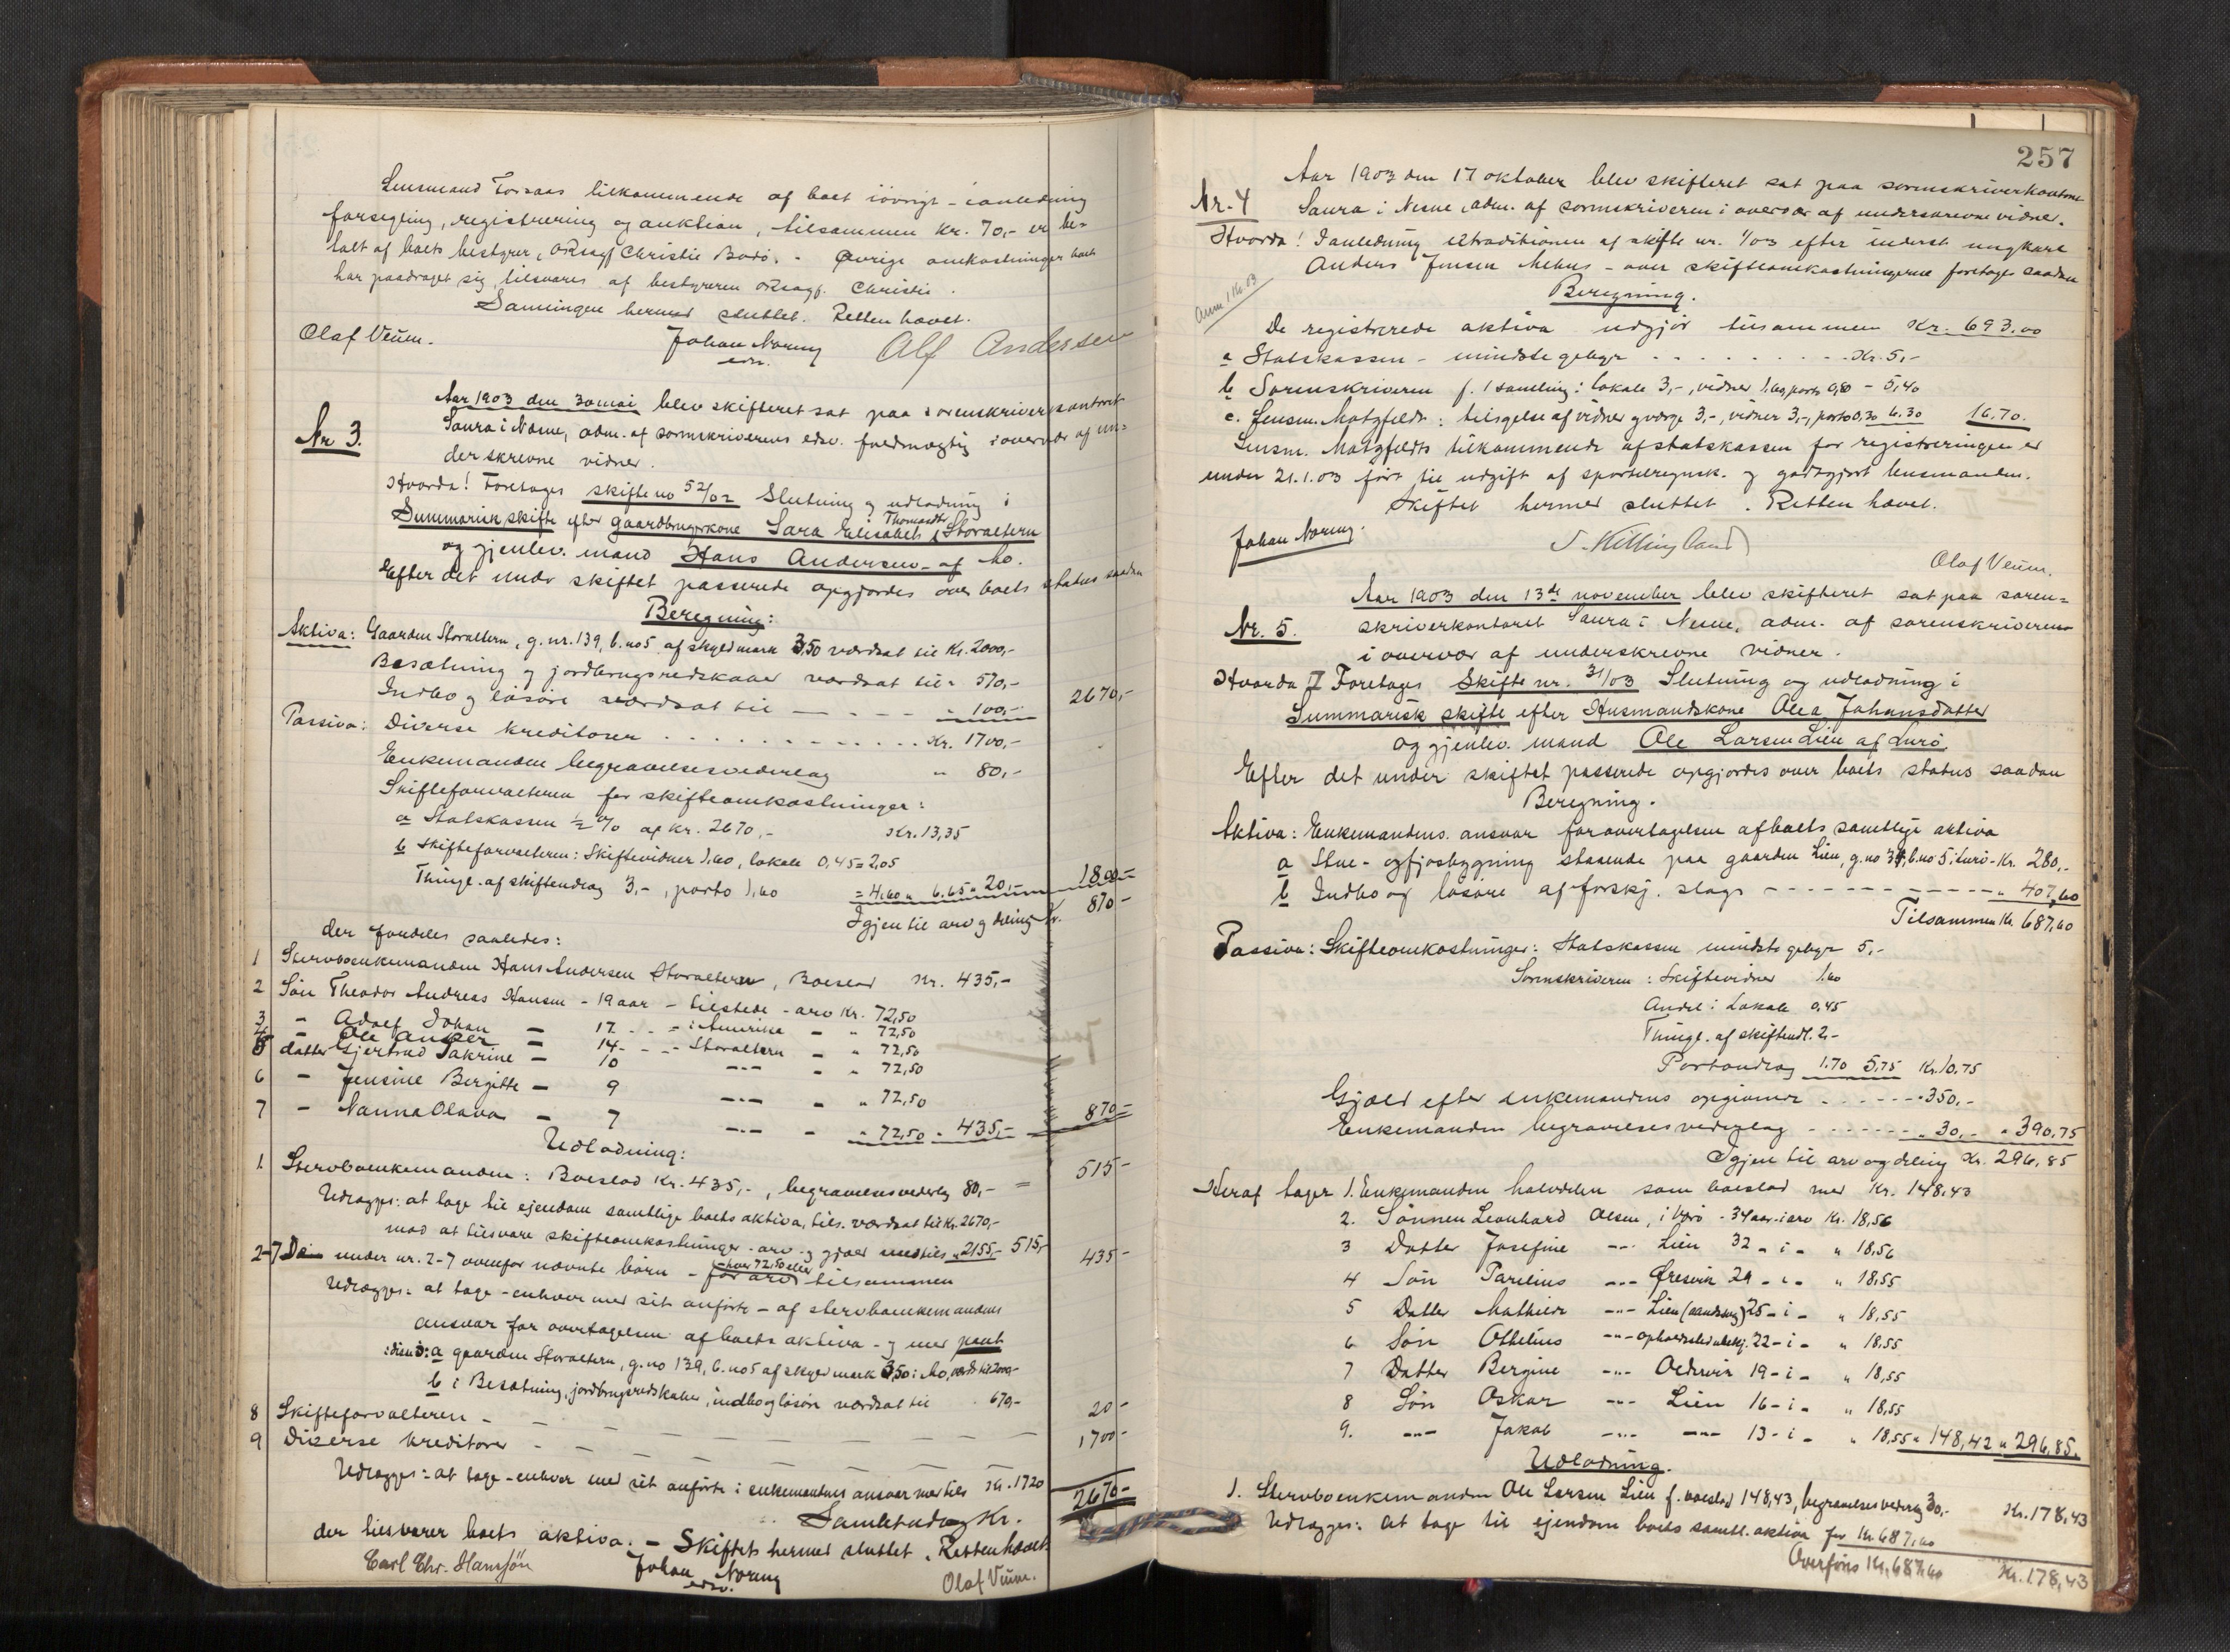 Lensmand Forsaas tilkommende af boet iövrigt - i anledning
forsegling, registrering og auktion, tilsammen Kr. 70,- er be-
talt af boets bestyrer, ORsagf Christie Bodö. - Övrige omkostninger boet
har paadraget sig tilsvares af bestyreren ORsagf. Christie.
Samlingen hermed sluttet. Retten hævet.
Olaf Veum. Johan Noreng Alf Andersen
edsv.
Aar 1903 den 30 mai blev skifteret sat paa sorenskriverkontoret
Nr 3. Saura i Nesne, adm. af sorenskriverens edsv. fuldmægtig i overvær af un-
derskrevne vidner.
Hvorda! Foretages skifte no 52/02 Slutning og udlodning i
Summarisk skifte efter gaardbrugerkone Sara Elisabet Thomasdtr Storaltern
og gjenlev. mand Hans Andersen - af Mo.
Efter det under skiftet passerede opgjordes over boets status saadan
Beregning:
Aktiva: Gaarden Storaltern, g.nr. 139, b.no 5 af skyld mark 3,50 værdsat til Kr. 2000,-
Besætning og jordbrugsredskaber værdsat til " 570,-
Indbo og lösöre værdsat til - - - - " 100,- 2670,-
Passiva: Diverse kreditorer . . . . . . . . . . . . . Kr. 1700,-
Enkemanden begravelsesvederlag " 80,-
Skifteforvalteren for skifteomkostninger:
a Statskassen ½ % af kr. 2670,- Kr. 13,35
b Skifteforvalteren: Skiftevidner 1,60, lokale 0,45 = 2,05
Thingl. af skifteudlæg 3,-, porto 1,60 = 4,60 " 6.65 " 20,- 1800-
Igjen til arv og deling Kr. 870-
der fordeles saaledes:
1 Stervboenkemanden Hans Andersen Storaltern, Boeslod Kr. 435,-
2 Sön Theodor Andreas Hansen - 19 aar - tilstede - arv Kr. 72,50
3 - Adolf Johan - 17 - - - i Amerika - " 72,50
4 - Ole Anser - 14 - - - Storaltern - " 72,50
5 datter Gjertrud Pakrine - 10 -"- - " 72,50
6 - Jensine Bergitte - 9 -"- - " 72,50
7 - Nanna Olava - 7 -"- - " 72,50 " 435,- 870-
Udlodning:
1. Stervboenkemanden: Boeslod Kr. 435,-, begravelsesvederlag 80,- = 515-
Udlægges: at tage til ejendom samtlige boets aktiva, tils. værdsat til Kr. 2670,-
mod at tilsvare skifteomkostninger - arv og gjæld med tils " 2155,- 515,-
2-7 De under nr. 2-7 ovenfor nævnte börn - for arv - hver 72,50 eller tilsammen 435-
Udlægges: at tage - enhver med sit anförte - af stervboenkemandens
ansvar for overtagelsen af boets aktiva - og med pant
a gaarden Storaltern, g.no 139, b.no 5 af skyld mark 3,50 i Mo, værds til 2000,-
b i Besætning, jordbrugsredskaber, indbo og lösöre værdsat til 670,-
8 Skifteforvalteren - - - - - - 20-
9 Diverse kreditorer - - - - - - 1700-
Udlægges: at tage - enhver med sit anförte i enkemandens ansvar med tils Kr. 1720
Samlet udlæg Kr. 2670-
der tilsvarer boets aktiva. - Skiftet hermed sluttet. Retten hævet.
Carl Chr. Hansjön Johan Noreng Olaf Veum.
edsv.
257
Aar 1903 den 17 oktober blev skifteret sat paa sorenskriverkontoret
Nr. 4 Saura i Nesne, adm. af sorenskriveren i overvær af underskrevne vidner.
Hvorda! I anledning extraditionen af skifte nr. 1/03 efter inderst ungkarl
Anders Jensen Mehus - over skifteomkostningerne foretages saadan
Beregning.
De registrerede aktiva udgjör tilsammen Kr. 693.00
a Statskassen - mindste gebyr . . . . . . . . . Kr. 5,-
b Sorenskriveren f. 1 samling: lokale 3,-, vidner 1,60, porto 0,80 - 5,40
c. Lensm. Motzfeldt: tilsigelse af vidner og værge 3,-, vidner 3,-, porto 0.30 6.30 16.70.
Lensm. Motzfeldts tilkommende af statskassen for registreringen er
under 21.1.03 fört til udgift af sportelregnsk. og godtgjort lensmanden.
Skiftet hermed sluttet. Retten hævet.
Johan Noreng.
Olaf Veum.
Aar 1903 den 13de november blev skifteret sat paa soren-
Nr. 5. skriverkontoret Saura i Nesne, adm. af sorenskriveren
i overvær af underskrevne vidner.
Hvorda! Foretages Skifte nr. 31/03 Slutning og udlodning i
Summarisk skifte efter Husmandskone Olea Johansdatter
og gjenlev. mand Ole Larsen Lien af Lurö.
Efter det under skiftet passerede opgjordes over boets status saadan
Beregning.
Aktiva: Enkemandens ansvar for overtagelsen af boets samtlige aktiva
a Stue- og fjösbygning staaende paa gaarden Lien, g.no 34, b.no 5 i Lurö - Kr. 280,-
b Indbo og lösöre af forskj. slags - - - - - - - - - - " 407,60
Tilsammen Kr. 687,60
Passiva: Skifteomkostninger: Statskassen mindste gebyr 5,-
Sorenskriveren: Skiftevidner 1,60
Andel i Lokale 0,45
Thingl. af skifteudl. 2,-
Portoandlag 1.70 5,75 Kr. 10.75
Gjæld efter enkemandens opgivende . - - - - - - 350.-
Enkemanden begravelsesvederlag - - - - - - - " 30,- " 390.75
Igjen til arv og deling Kr. 296,85
Heraf tager 1. Enkemanden halvdelen som boeslod med Kr. 148.43
2. Sönnen Leonhard Olsen, i Lurö - 34 aar - i arv Kr. 18,56
3 Datter Josefine -"- Lien 32 - i - " 18,56
4 Sön Parelius -"- Öresvik 29 - i - " 18,55
5 Datter Mathilde -"- Lien (sandssvag) 25 - i - " 18,55
6 Sön Othelius -"- opholdssted ubekj. 22 - i - " 18,55
7 Datter Bergine -"- Oldervik 19 - i - " 18,55
8 Sön Oskar -"- Lien 16 - i - " 18,55
9. -"- Jakob -"- -"- 13 - i - " 18,55 " 148,42 " 296,85.
Udlodning.
1. Stervboenkemanden Ole Larsen Lien f. boeslod 148,43, begravelsesvederlag 30,- Kr. 178,43
Udlægges: at tage til ejendom boets samtl. aktiva for Kr. 687,60
Overföres Kr. 687,60 Kr. 178,43